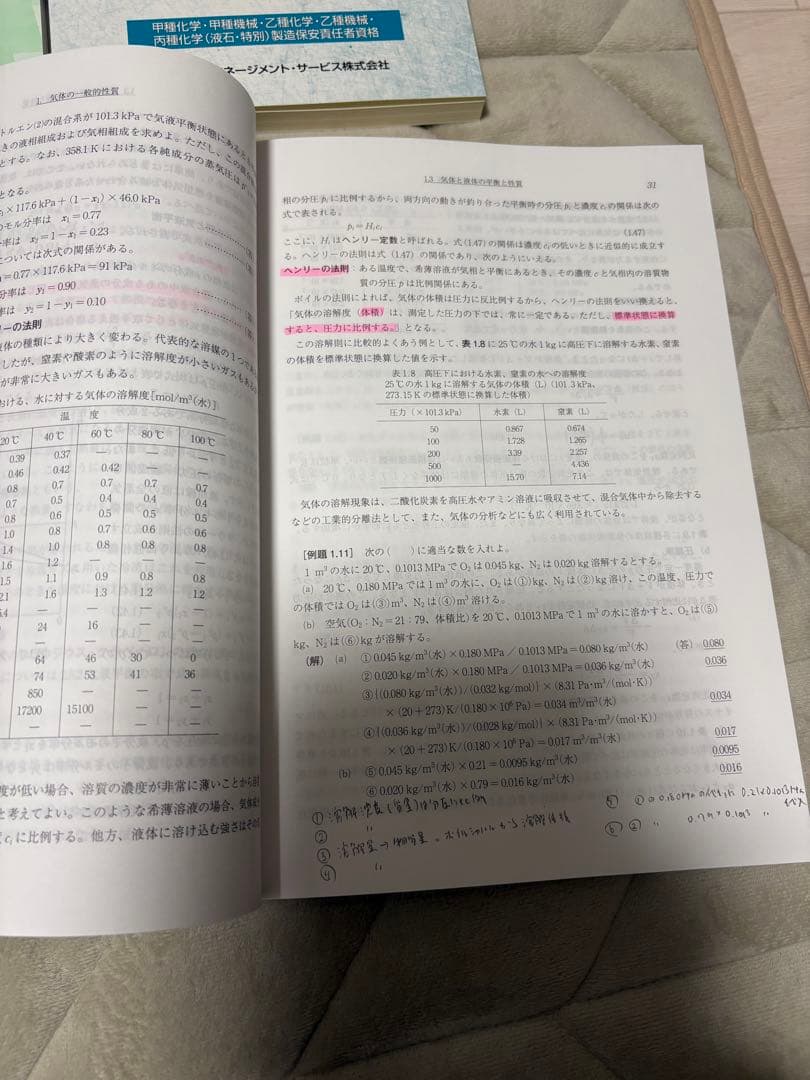 甲種化学・甲種機械・乙種化学・乙種機械・
丙種化学(液石・特別)製造保安責任者資格
ネージメント・サービス株式会社
1. 気体の一般的性質
トルエン(2)の混合系が101.3 kPaで気液平衡状態にある
きの液相組成および気相組成を求めよ。ただし、この
とする。なお、358.1 Kにおける各純成分の蒸気圧は
となる。
×117.6 kPa+(1-x₁)×46.0 kPa
のモル分率は x₁=0.77
率は x₂=1-x₁=0.23
については次式の関係がある。
=0.77×117.6 kPa=91 kPa
分率は y₁=0.90
は y₂=1-y₁=0.10
リーの法則
体の種類により大きく変わる。代表的な溶媒の1つであ
したが、窒素や酸素のように溶解度が小さいガスもあ
が非常に大きいガスもある。
おける、水に対する気体の溶解度[mol/m³(水)]
温 度
20℃ 40℃ 60℃ 80℃ 100℃
0.39 0.37 — — —
0.46 0.42 0.42 — —
0.8 0.7 0.7 0.7 0.7
0.7 0.5 0.4 0.4 0.4
0.8 0.6 0.5 0.5 0.5
1.0 0.8 0.7 0.6 0.6
1.4 1.0 0.8 0.8 0.8
1.6 1.2 — — —
1.5 1.1 0.9 0.8 0.8
2.1 1.6 1.3 1.2 1.2
5.4 — — — —
24 16 — —
— — — —
64 46 30 0
74 53 41 36
850 — — —
17200 15100 — —
— — — —
度が低い場合、溶質の濃度が非常に薄いことから
と考えてよい。このような希薄溶液の場合、気体
cᵢに比例する。他方、液体に溶け込む強さはその
1.3 気体と液体の平衡と性質 31
相の分圧pᵢに比例するから、両方向の動きが釣り合った平衡時の分圧pᵢと濃度cᵢの関係は次の
式で表される。
pᵢ=Hᵢcᵢ (1.47)
ここに、Hᵢはヘンリー定数と呼ばれる。式(1.47)の関係は濃度cᵢの低いときに近似的に成立す
る。ヘンリーの法則は式(1.47)の関係であり、次のようにいえる。
ヘンリーの法則:ある温度で、希薄溶液が気相と平衡にあるとき、その濃度cと気相内の溶質物
質の分圧pは比例関係にある。
ボイルの法則によれば、気体の体積は圧力に反比例するから、ヘンリーの法則をいい換えると、
「気体の溶解度(体積)は、測定した圧力の下では、常に一定である。ただし、標準状態に換算
すると、圧力に比例する。」となる。
この溶解則に比較的よくあう例として、表1.8に25℃の水1 kgに高圧下に溶解する水素、窒素
の体積を標準状態に換算した値を示す。
表1.8 高圧下における水素、窒素の水への溶解度
25℃の水1 kgに溶解する気体の体積(L)(101.3 kPa、
273.15 Kの標準状態に換算した体積)
圧力(×101.3 kPa) 水素(L) 窒素(L)
50 0.867 0.674
100 1.728 1.265
200 3.39 2.257
500 — 4.436
1000 15.70 7.14
気体の溶解現象は、二酸化炭素を高圧水やアミン溶液に吸収させて、混合気体中から除去する
などの工業的分離法として、また、気体の分析などにも広く利用されている。
[例題1.11] 次の( )に適当な数を入れよ。
1 m³の水に20℃、0.1013 MPaでO₂は0.045 kg、N₂は0.020 kg溶解するとする。
(a) 20℃、0.180 MPaでは1 m³の水に、O₂は(①)kg、N₂は(②)kg溶け、この温度、圧力で
の体積ではO₂は(③)m³、N₂は(④)m³溶ける。
(b) 空気(O₂:N₂=21:79、体積比)を20℃、0.1013 MPaで1 m³の水に溶かすと、O₂は(⑤)
kg、N₂は(⑥)kgが溶解する。
(解) (a) ①0.045 kg/m³(水)×0.180 MPa/0.1013 MPa=0.080 kg/m³(水) (答) 0.080
②0.020 kg/m³(水)×0.180 MPa/0.1013 MPa=0.036 kg/m³(水) 0.036
③{(0.080 kg/m³(水))/(0.032 kg/mol)}×(8.31 Pa·m³/(mol·K))
×(20+273)K/(0.180×10⁶ Pa)=0.034 m³/m³(水) 0.034
④{(0.036 kg/m³(水))/(0.028 kg/mol)}×(8.31 Pa·m³/(mol·K))
×(20+273)K/(0.180×10⁶ Pa)=0.017 m³/m³(水) 0.017
(b) ⑤0.045 kg/m³(水)×0.21=0.0095 kg/m³(水) 0.0095
⑥0.020 kg/m³(水)×0.79=0.016 kg/m³(水) 0.016
①
② 〃
③ 溶解量→物質量
④ 〃